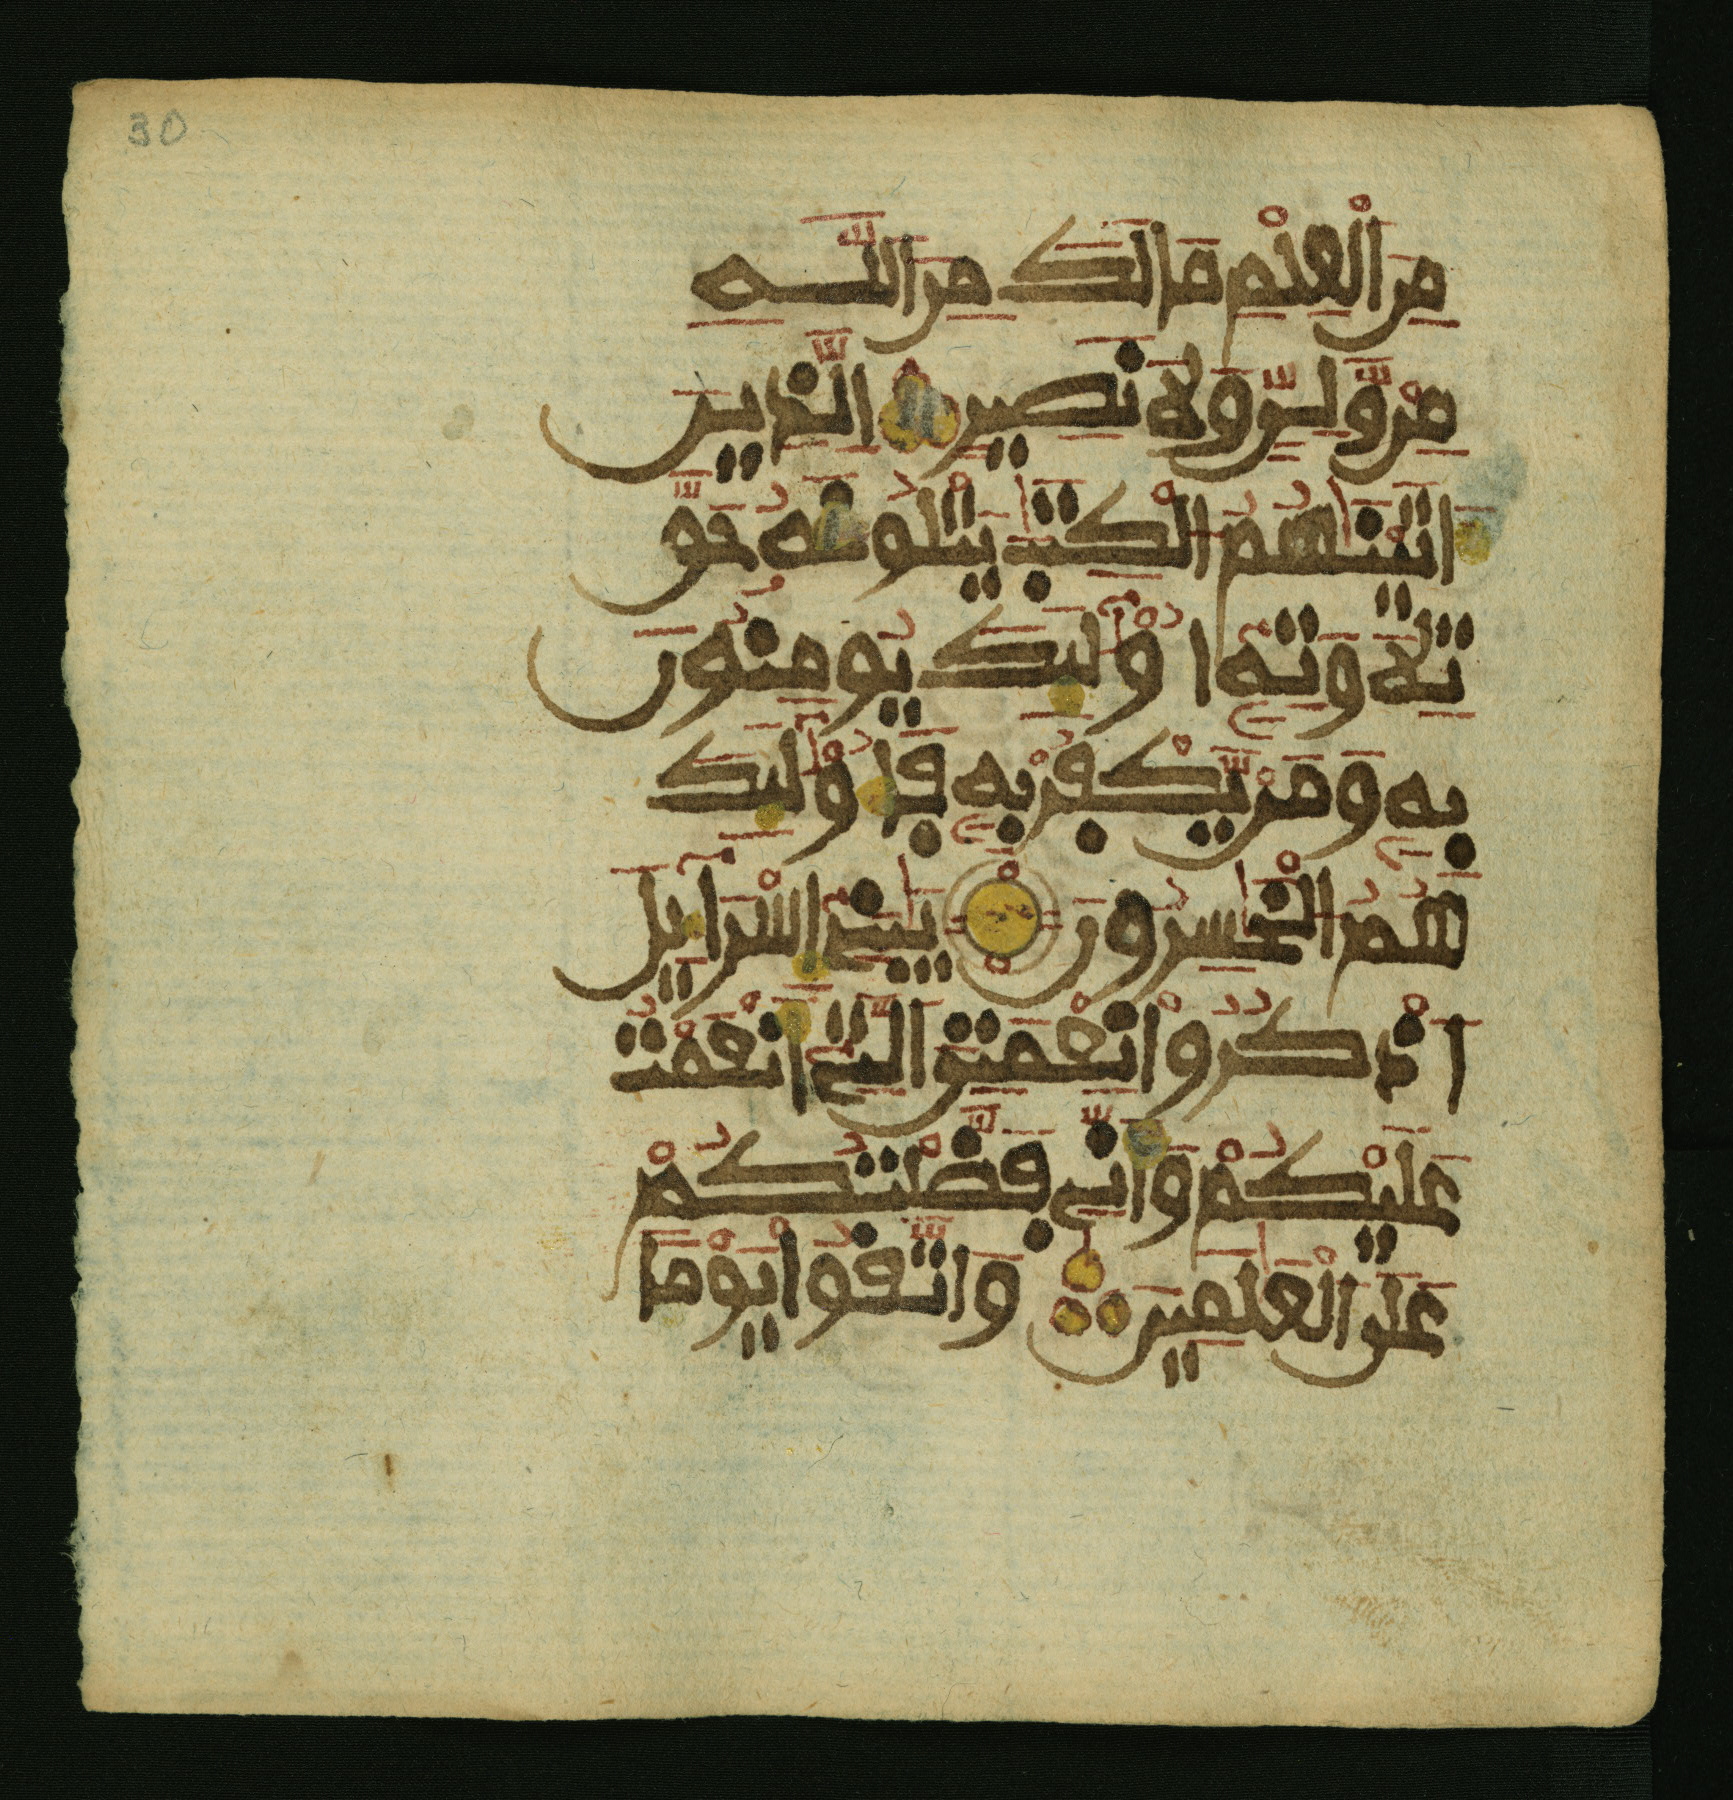 30
مِنَ الْعِلْمِ مَا لَكَ مِنَ اللَّهِ
مِنْ وَّلِيٍّ وَّلَا نَصِيرٍ الَّذِينَ
اتَيْنَهُمُ الْكِتَبَ يَتْلُونَهُ حَقَّ
تِلَاوَتِهِ اُوْلَئِكَ يُومِنُونَ
بِهِ وَمَنْ يَّكْفُرْ بِهِ فَأُوْلَئِكَ
هُمُ الْخَسِرُونَ يَبَنِي إِسْرَاءِيلَ
اذْكُرُوا نِعْمَتِيَ الَّتِي أَنْعَمْتُ
عَلَيْكُمْ وَأَنِّي فَضَّلْتُكُمْ
عَلَى الْعَلَمِينَ وَاتَّقُوا يَوْمًا